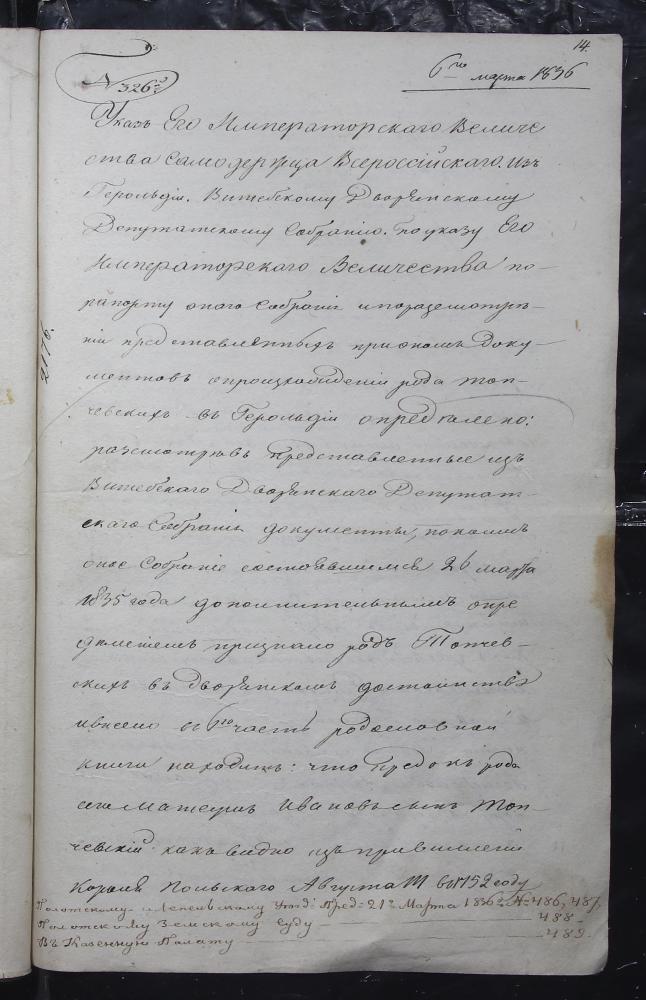 14.
N 3262.
6го марта 1836
Указъ Его Императорскаго Величе
ства Самодержца Всероссійскаго. изъ
Герольдіи. Витебскому Дворянскому
Депутатскому Собранію. по указу Его
Императорскаго Величества по-
рапорту онаго Собранія и поразсмотрѣ-
ніи представленныхъ приономъ Доку-
ментовъ опроизхожденіи рода Топ-
чевскихъ въ Герольдіи опредѣлено:
разсмотрѣвъ представленные изъ
Витебскаго Дворянскаго Депутат-
скаго Собранія документы, покоимъ
оное Собраніе состоявшимся 26 марта
1835 года дополнительнымъ опре
дѣленіемъ признало родъ Топчев-
скихъ въ дворянскомъ достоинствѣ
ивнесло въ 6ю часть родословной
книги находитъ: что Предокъ рода
сего Матеушъ Ивановъ сынъ Топ-
чевскій какъ видно изъ привиллегіи
Короля Польскаго Августа III въ 1752 году
Полотскому и Лепельскому Уѣзд: Пред: 21го Марта 1836го N 486, 487,
Полотскому Земскому Суду — 488 -
Въ Казенную Палату — 489 -
2176.